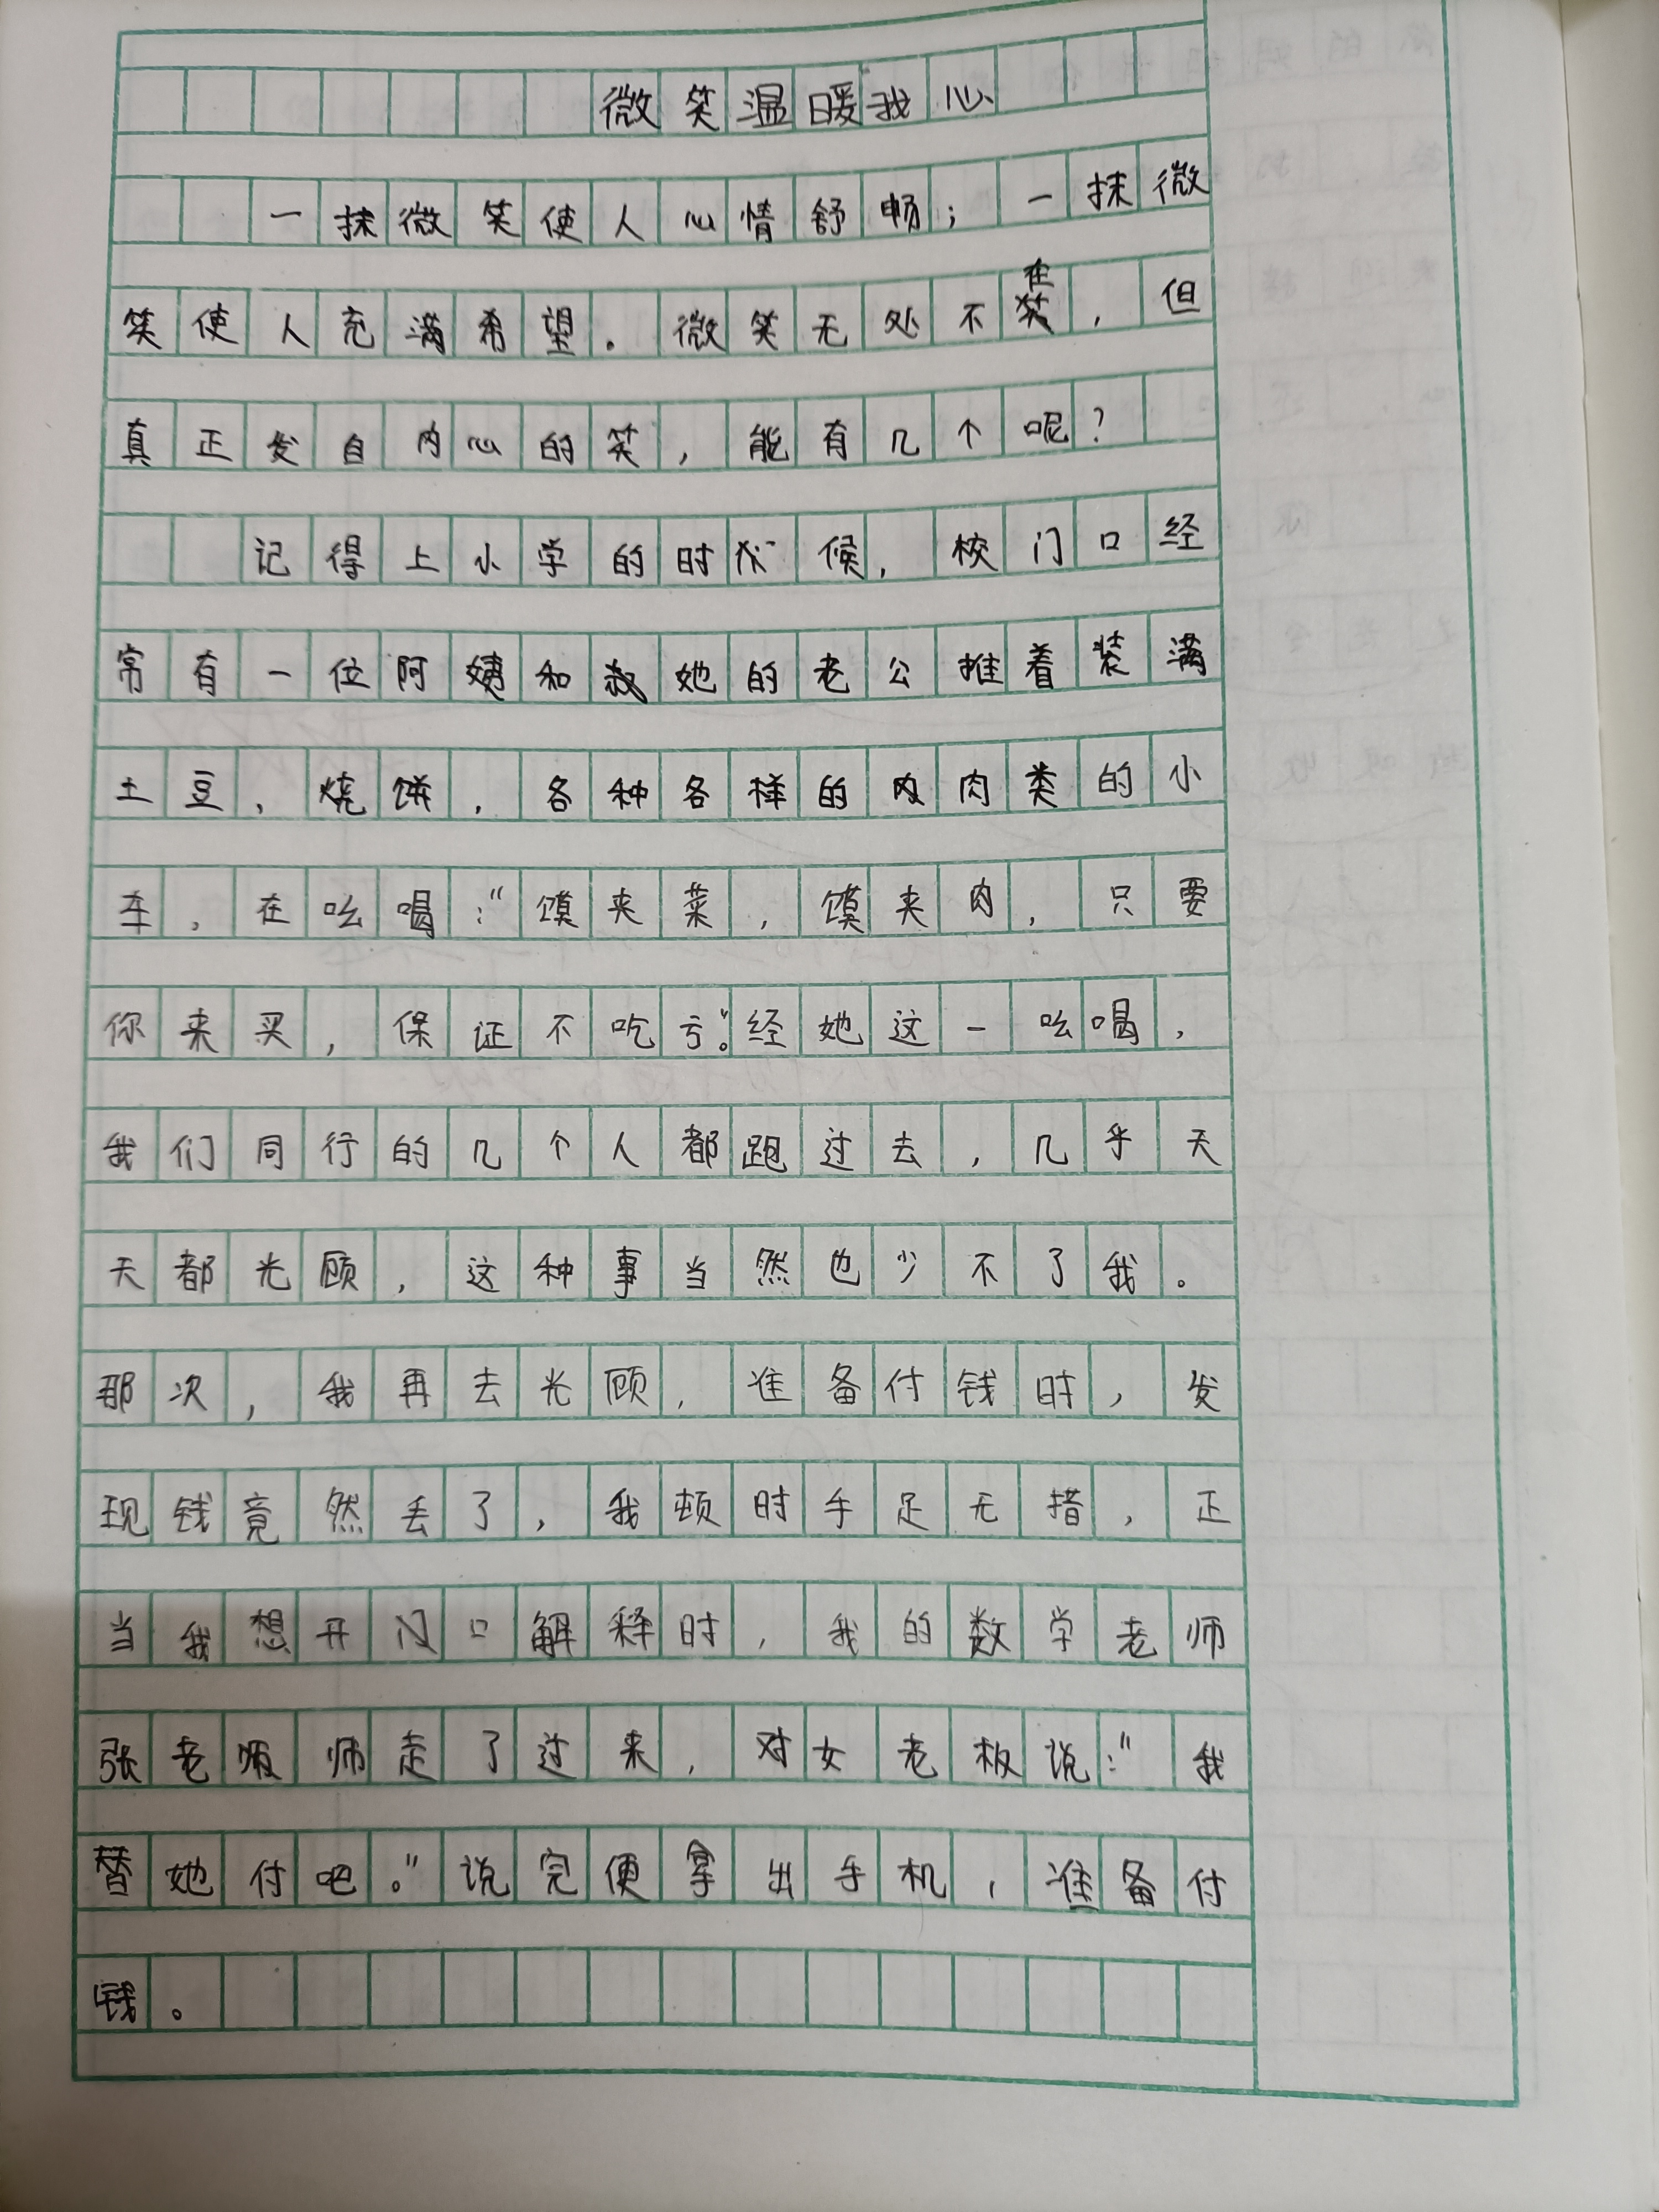 微笑温暖我心
一抹微笑使人心情舒畅；一抹微
笑使人充满希望。微笑无处不在，但
真正发自内心的笑，能有几个呢？
记得上小学的时候，校门口经
常有一位阿姨和她的老公推着装满
土豆，烧饼，各种各样的肉类的小
车，在吆喝：“馍夹菜，馍夹肉，只要
你来买，保证不吃亏。”经她这一吆喝，
我们同行的几个人都跑过去，几乎天
天都光顾，这种事当然也少不了我。
那次，我再去光顾，准备付钱时，发
现钱竟然丢了，我顿时手足无措，正
当我想开口解释时，我的数学老师
张老师走了过来，对女老板说：“我
替她付吧。”说完便拿出手机，准备付
钱。